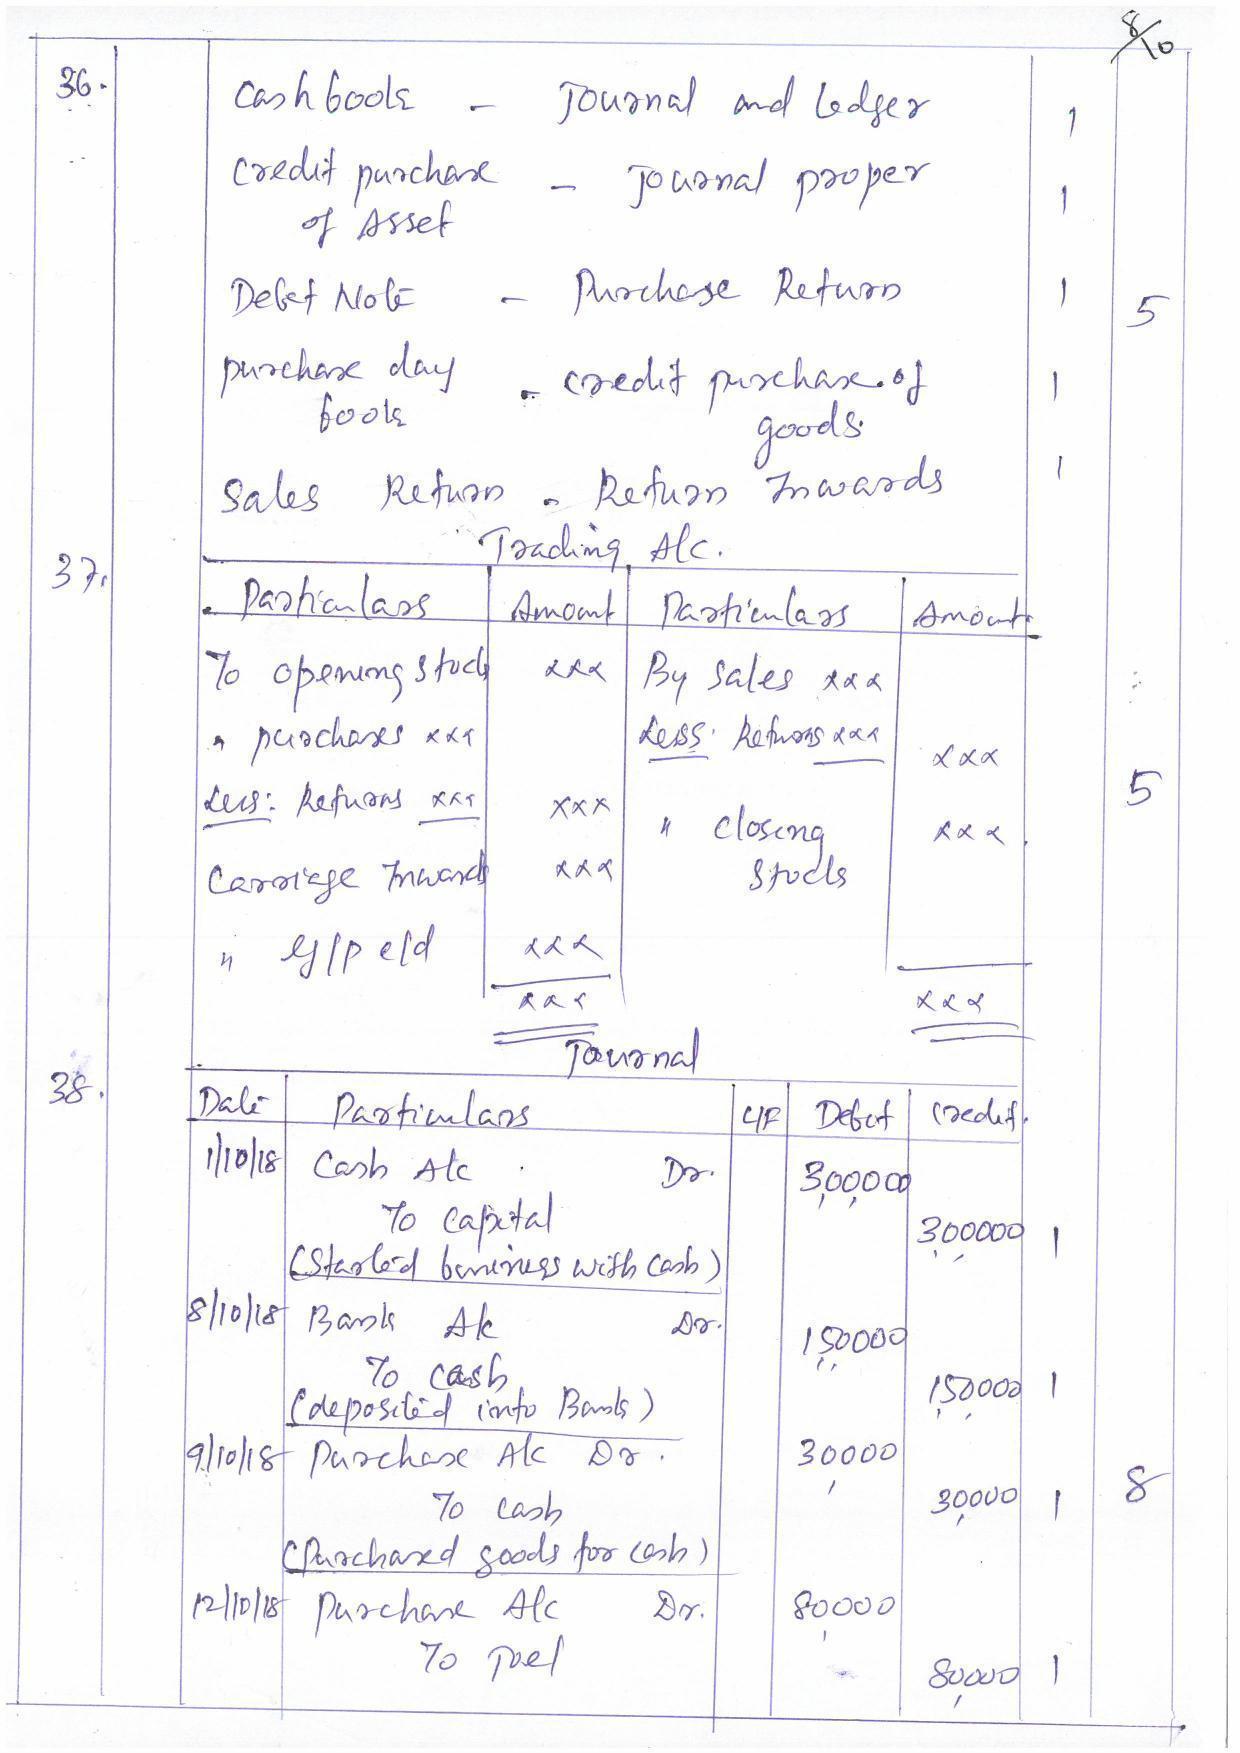 8/10
36.
Cash book - Journal and Ledger 1
Credit purchase - Journal proper 1
of Asset
Debit Note - Purchase Return 1
5
purchase day - credit purchase of 1
book goods.
Sales Return - Return Inwards 1
37. Trading A/c.
Particulars Amount Particulars Amount
To opening stock xxx By Sales xxx
" purchases xxx Less: Returns xxx xxx
Less: Returns xxx xxx " closing xxx
5
Carriage Inwards xxx Stock
" G/P c/d xxx
xxx xxx
38. Journal
Date Particulars L/F Debit Credit.
1/10/18 Cash A/c Dr. 3,00,000
To Capital 3,00,000 1
(Started business with cash)
8/10/18 Bank A/c Dr. 1,50,000
To cash 1,50,000 1
(deposited into Bank)
9/10/18 Purchase A/c Dr. 30,000
To cash 30,000 1
8
(Purchased goods for cash)
12/10/18 Purchase A/c Dr. 80,000
To Joel 80,000 1